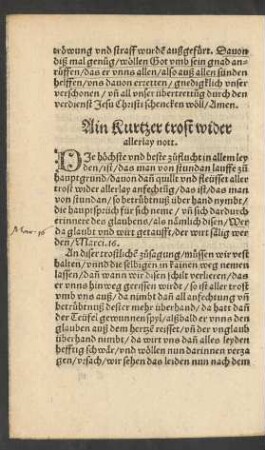 tröwung vnd straff wurdē außgefürt. Dauon
diß mal genůg/wöllen Got vmb sein gnad an-
rüffen/das er vnns allen/also auß allen sünden
helffen/vns dauon erretten/gnedigklich vnser
verschonen/vñ all vnser übertrettũg durch den
verdienst Jesu Christi schencken wöll/Amen.
Ain Kurtzer trost wider
allerlay nott.
DJe höchste vnd beste zůflucht in allem ley
den/ist/das man von stundan lauffe zů
hauptgrund/dauon dañ quillt vñ fleüsset aller
trost wider allerlay anfechtũg/das ist/das man
von stundan/so betrübtnuß über hand nymbt/
die hauptsprüch für sich neme/vñ sich dardurch
erinnere des glaubens/als nämlich disen/Wer
da glaubt vnd wirt getaufft/der wirt sälig wer
den/Marci.16.
Mar. 16
An diser trostlichē zůsagung/müssen wir vest
halten/vnnd die selbigen in kainen weg nemen
lassen/dañ wann wir disen schilt verliesen/das
er vnns hin weg gerissen wirdt/so ist aller trost
vmb vns auß/da nimbt dañ all anfechtung vñ
betrübtnuß dester mehr überhand/da hatt dañ
der Teüfel gewunnen spyl/alßbald er vnns den
glauben auß dem hertzē reisset/vñ der vnglaub
über hand nimbt/da wirt vns dañ alles leyden
hefftig schwär/vnd wöllen nun darinnen verza
gen/vrsach/wir sehen das leiden nun nach dem